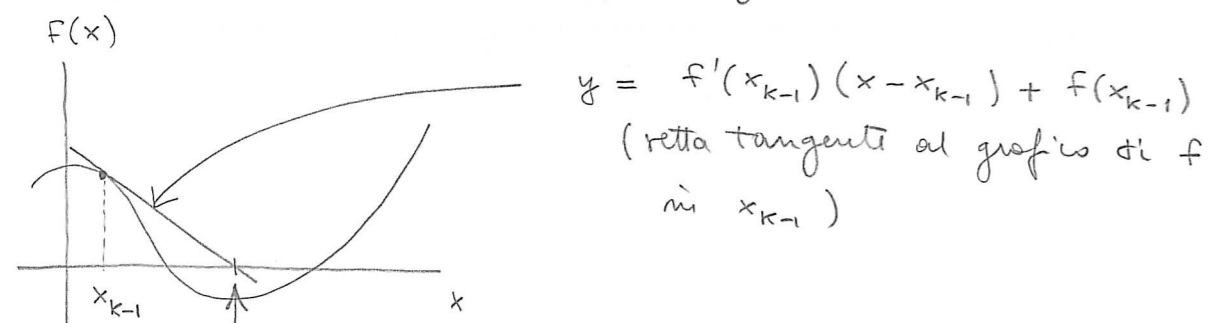 F(x)
y = f'(x_{k-1})(x - x_{k-1}) + f(x_{k-1})
(retta tangente al grafico di f
in x_{k-1})
x_{k-1}
x